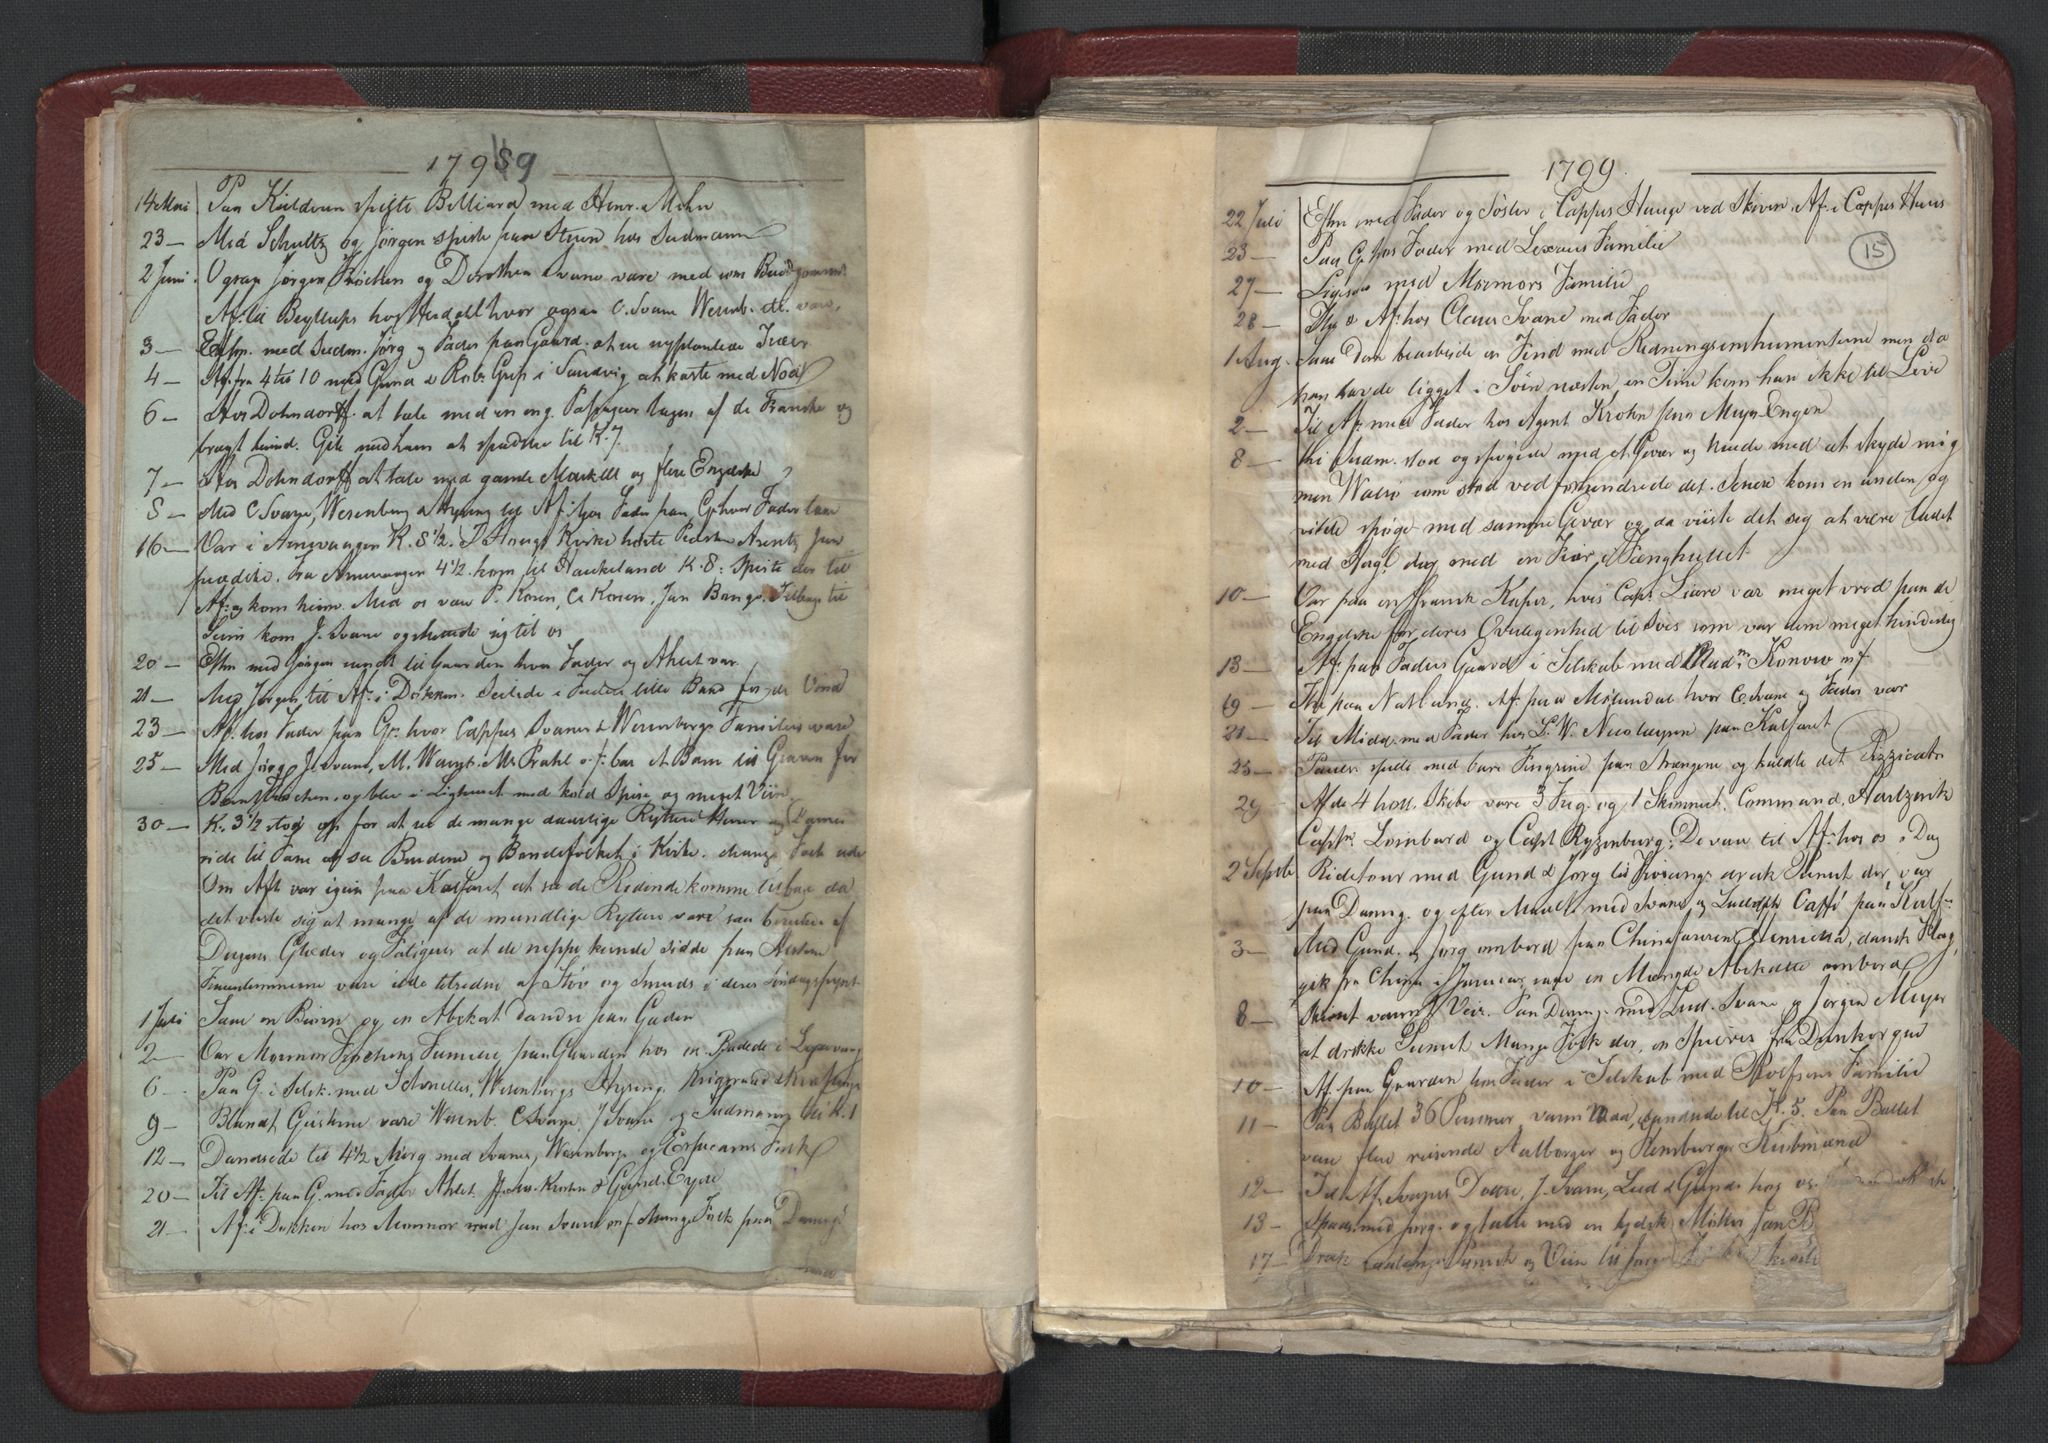 1799
14 Mai Paa Kalderen spillte Billiard med Henr. Mohr
23 — Med Schultz og Jørgen spiste paa Steen hos Sudmann
2 Juni Ogsaa Jørgen Fasten og Dorothea Svane vare med som
Af. til Beyllups hos Herdahl hvor ogsaa C. Svane Wesenb. etc. vare.
3 — Eftm. med Sudm. Jørg og Fader paa Gaard. at se nyplantede Træer
4 — Af. fra 4 til 10 med Gund & Rob. Grip i Sandvig at kaste med Nod
6 — Hos Dohndorff at tale med en eng. Passageer tagen af de Franske og
bragt herind. Gik med ham at spadsere til K. 7
7 — Hos Dohndorff at tale med gamle og flere Engelske
8 — Med C Svane, Wesenberg & Hysing til Af. hos Fader paa G. hvor Fader laae
16 — Var i Arnevaagen K. 8 1/2. I Haugs Kirke hørte Presten Arentz Jun
prædike. Fra Arnevaagen 4 1/2. kom til Haukeland K. 8. Spiste der til
Af. og kom heim. Med os vare P. Rosen, C. Rosen, Jan Bang. Tilbage til
kom J. Svane og sluttede sig til os
20 — Eftm med Jørgen rundt til Gaarden hvor Fader og Ahlert var.
21 — Med Jørgen til Af. i Dokken. Seilede i Faders lille Baad for de Vind
23 — Af. hos Fader paa G. hvor Cappes Svanes & Wesenbergs Familier vare
25 — Med Jørg, J. Svane, M. Wernt. M. Prahl o. f. bar et Barn til Graven for
og blev i Lighuset med kold Spise og meget Viin
30 — K. 3 1/2 stod op for at se de mange daarlige Ryttere Herrer og Damer
ride til Fane at see Brudene og Bondefolket i Kirke. mange Folk ude
Om Aft var igien paa Kalfaret at se de Ridende komme tilbage da
det viste sig at mange af de mandlige Ryttere vare saa berusede af
Dagens Glæder og Fatiguer at de neppe kunde sidde paa Hestene
Fruentimmerne vare ilde tilredne af Støv og Smuds i deres Søndagspynt
1 Juli Saae en Biørn og en Abekat dandse paa Gaden
2 — Var Mormor Familie paa Gaarden hos os. Badede i Lexevaag
6 — Paa G. i Selsk. med Schnelles, Wesenbergs Hysing, Krigsraad
9 — Blandt Giesterne vare Wesenb. C Svane, J Svane og Sudmann til K. 1
12 — Dandsede til 4 1/2 Morg med Svanes, Wesenbergs og Folk
20 — Til Af. paa G. med Fader Ahlert & Gund. Eyde
21 — Af. i Dokken hos Mormor med Jan Svane o f. Mange Folk paa Damsg.
1799.
15
22 Juli Eftm med Fader og Søster i Cappes Hauge ved Skiven. Af. i Cappes Huus
23 — Paa G. hos Fader med Lexaus Familie
27 — Ligesaa med Mormors Familie
28 — Af. hos Claus Svane med Fader
1 Aug. Saae Dom bearbeide en Find med Redningsinstrumenterne men da
han havde ligget i Søen næsten en Time kom han ikke til Live
2 — Til Af. med Fader hos Agent Krohn paa Meyer-Engen
8 — Hos Sudm. stod og spøgede med et Gevær og truede med at skyde mig
men som stod ved forhindrede det. Senere kom en anden og
vilde spøge med samme Gevær og da viiste det sig at være ladet
med Hagl dog med en Fiær i Fænghullet
10 — Var paa en fransk Kaper, hvis Capt. var meget vred paa de
Engelske for deres Overlegenhed til Søes som var dem meget hinderlig
13 — Af. paa Faders Gaard i Selskab med Mad. Konow m f
19 — Ture paa Natland. Af. paa Møllendal hvor C Svane og Fader var
21 — Til Midd. med Fader hos L. W. Nicolaysen paa Kalfaret
25 — spille med bare Fingrene paa Strængene og kaldte det Pizzicato
29 — Af de 4 holl. Skibe vare 3 Freg. og 1 Command. Hartzinck
Captn. Lombard og Capt Ryzenburg. De vare til Af. hos os i Dag
2 Septb Ridetour med Gund & Jørg til drak Punch der var
paa Damsg. og efter med Svane og Ludolph Caffé paa Kalf.
3 — Med Gund. og Jørg ombord paa Chinafareren Henricka, dansk Flag,
gik fra China i Januar, en Mængde Abekatte ombord
8 — Skiønt varmt Veir. Paa Damsg. med Lud. Svane og Jørgen Meyer
at drikke Punch Mange Folk der, en fra Dunkerque
10 — Af. paa Gaarden hos Fader i Selskab med Rolfsens Familie
11 — Paa Ballet 36 Personer varm Mad, dandsede til K. 5. Paa Ballet
vare flere reisende Aalborger og Flensburger Kiøbmænd
12 — Til Af. Døttre, J. Svane, Lud & Gunds hos os.
13 — Spads. med Jørg. og talte med en tydsk Jan B
17 — Drak Punch og Viin til Jørg